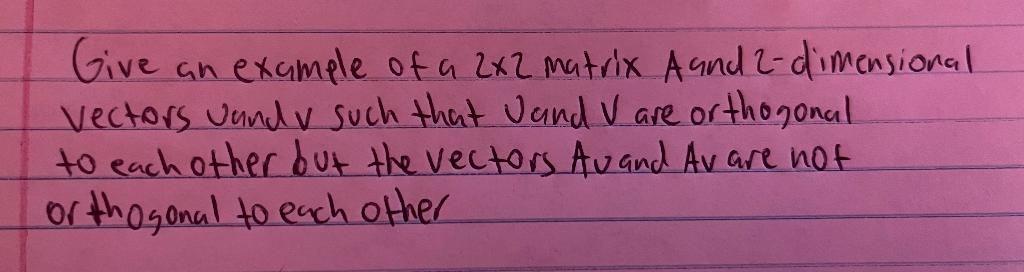 Give an example of a 2x2 matrix A and 2-dimensional
vectors u and v such that u and v are orthogonal
to each other but the vectors Au and Av are not
orthogonal to each other